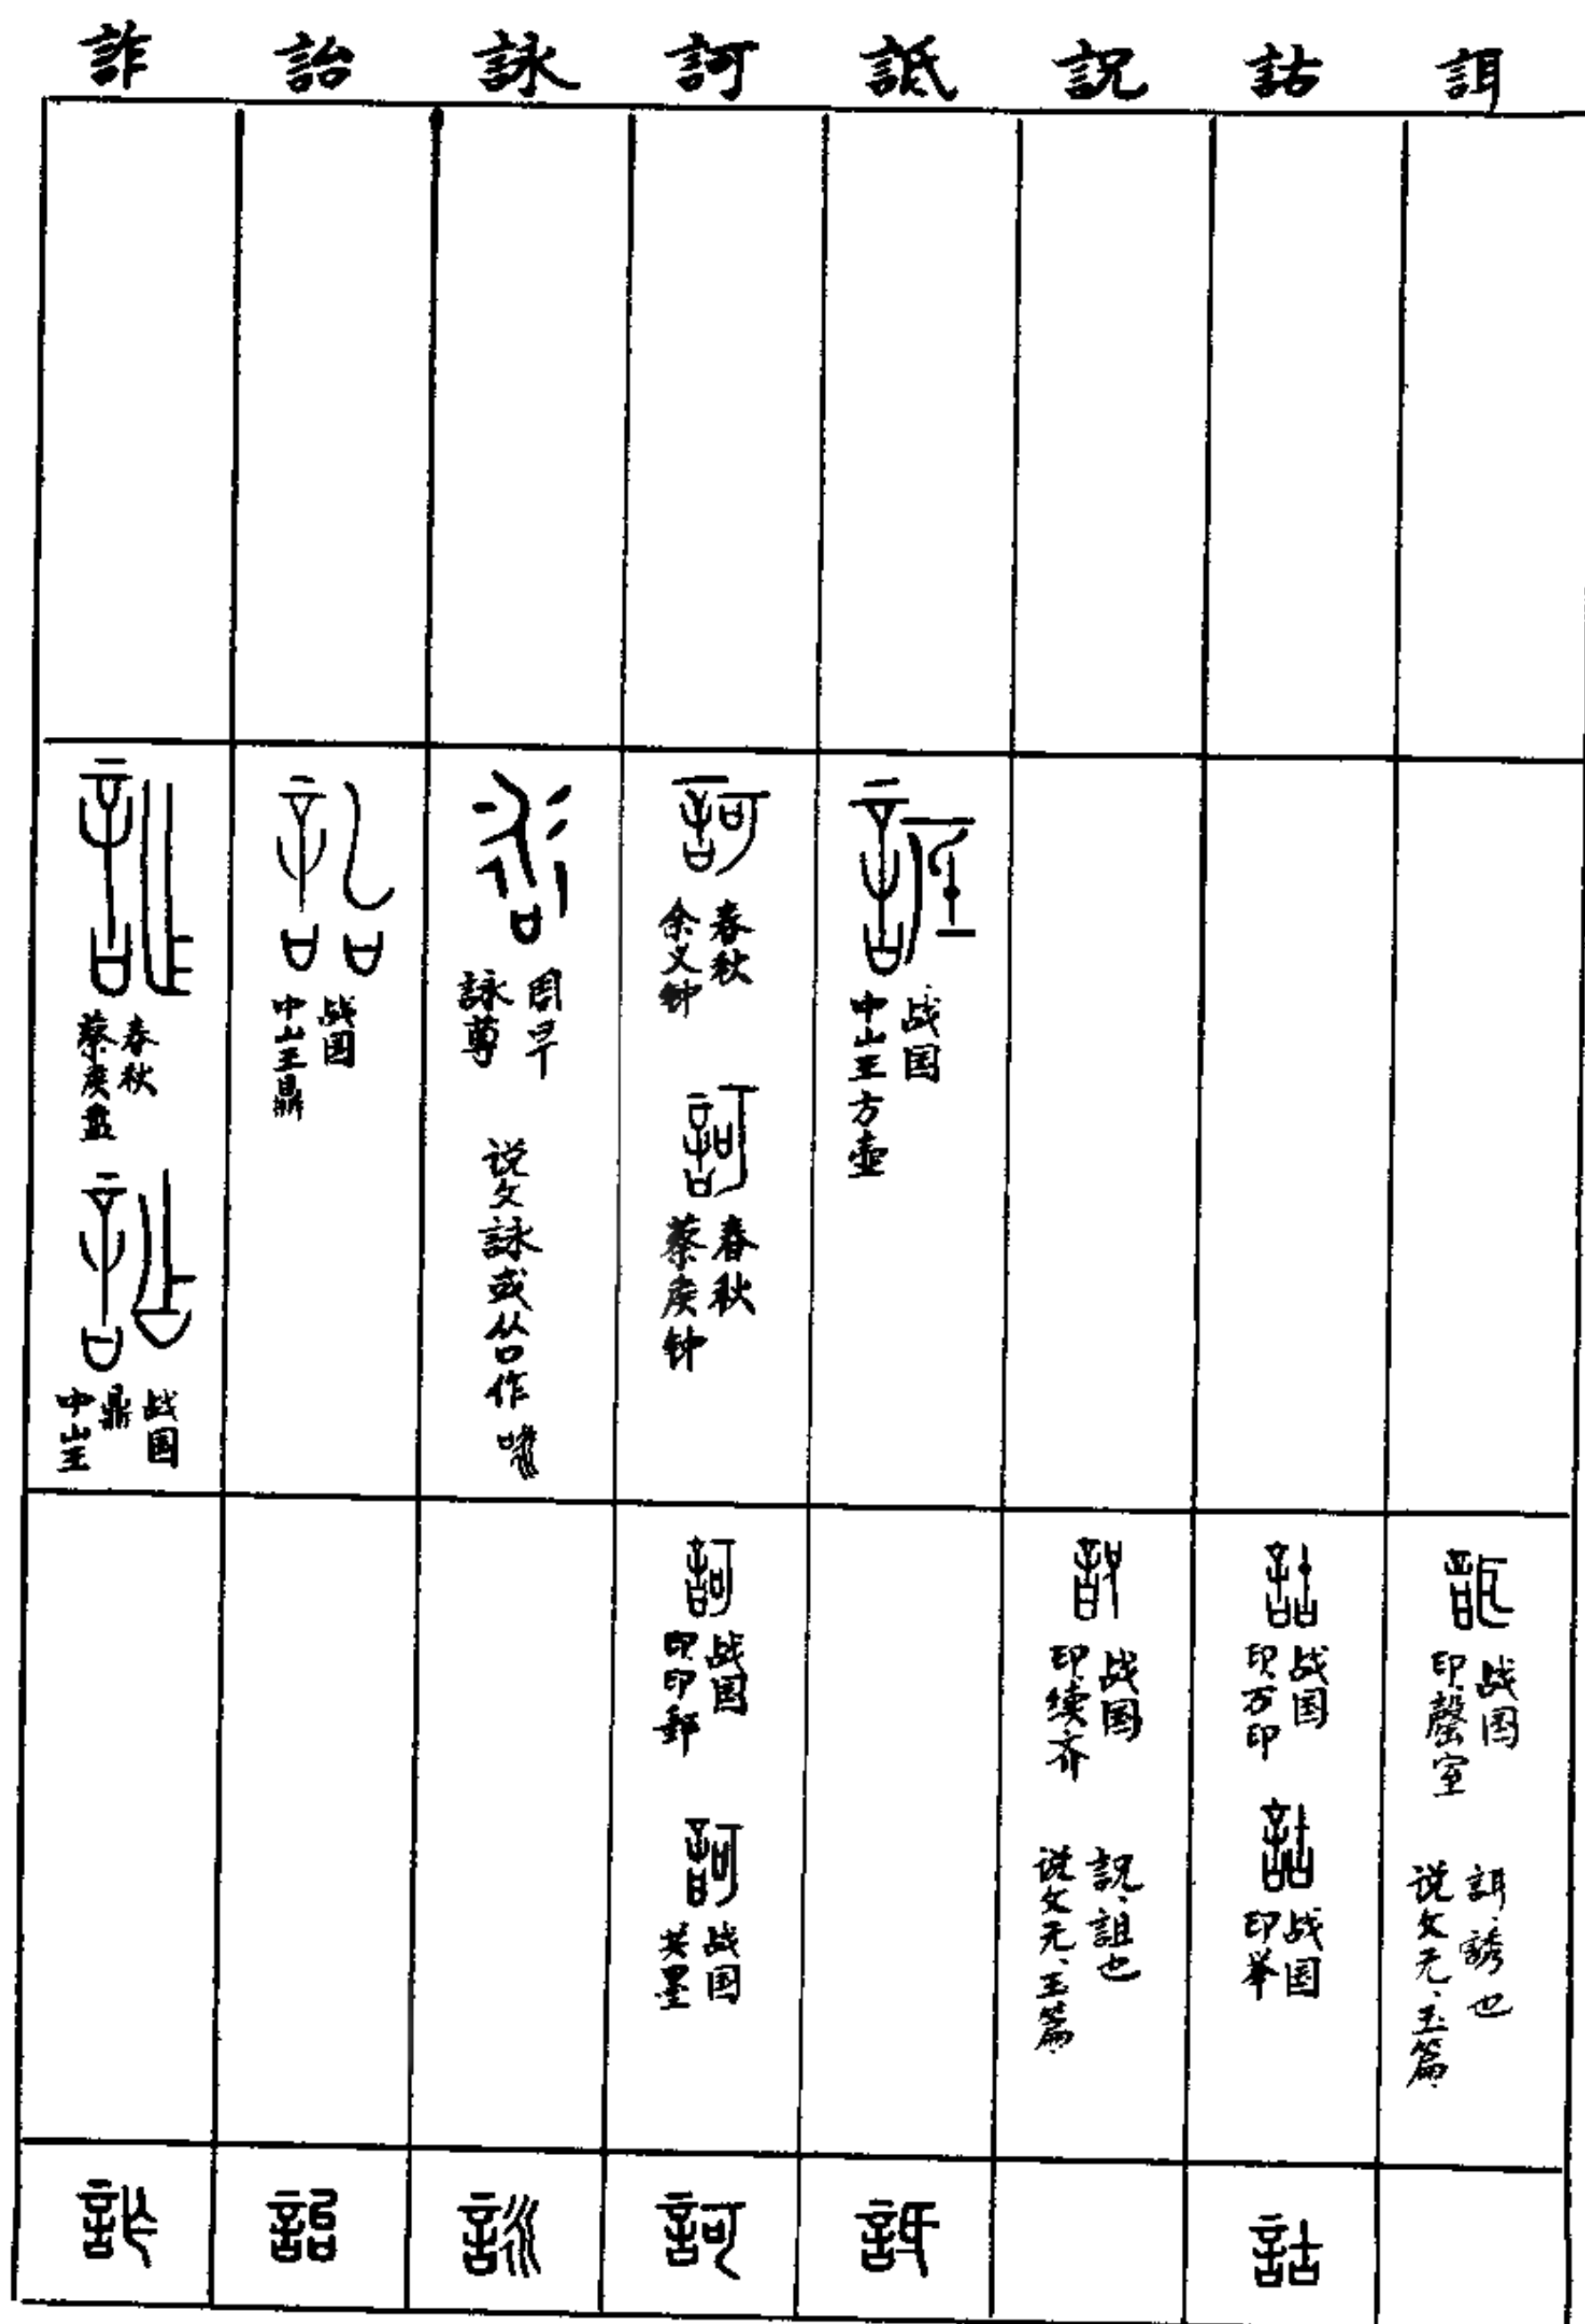 詐 詒 詠 訶 詆 詋 詁 誀
春秋
蔡侯盘
战国
中山王
鼎
战国
中山王鼎
周早
詠尊
说文詠或从口作咏
春秋
余义钟
春秋
蔡侯钟
战国
中山王方壶
战国
战国
印续齐
詋,詛也
说文无,玉篇
战国
印方印
战国
印举
战国
印罄室
誀,誘也
说文无,玉篇
詐 詒 詠 訶 詆 詁